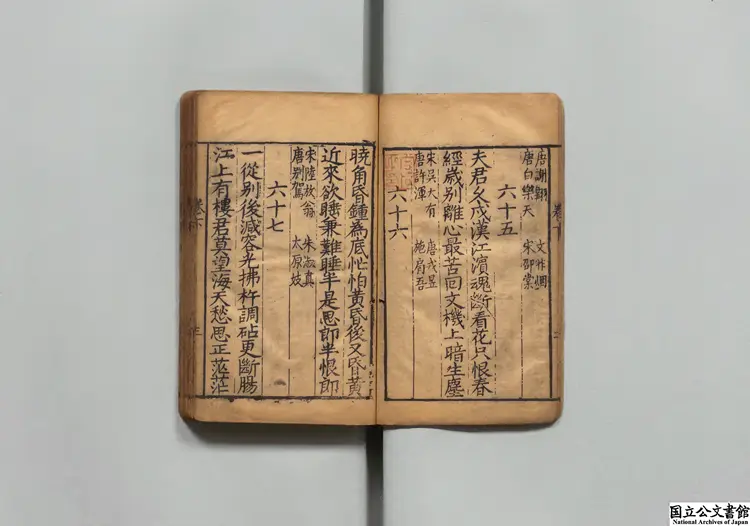 唐謝翺
唐白樂天 宋邵棠
六十五
夫君久戍漢江濱魂斷看花只恨春
經歲別離心最苦回文機上暗生塵
宋吳大有 唐戎昱
唐許渾 施肩吾
六十六
曉角昏鍾為底忙怕黃昏後又昏黃
近來欲睡兼難睡半是思郎半恨郎
宋陸放翁 朱淑真
唐別駕 太原妓
六十七
一從別後減容光拂杵調砧更斷腸
江上有樓君莫望海天愁思正茫茫
卷下
国立公文書館
National Archives of Japan